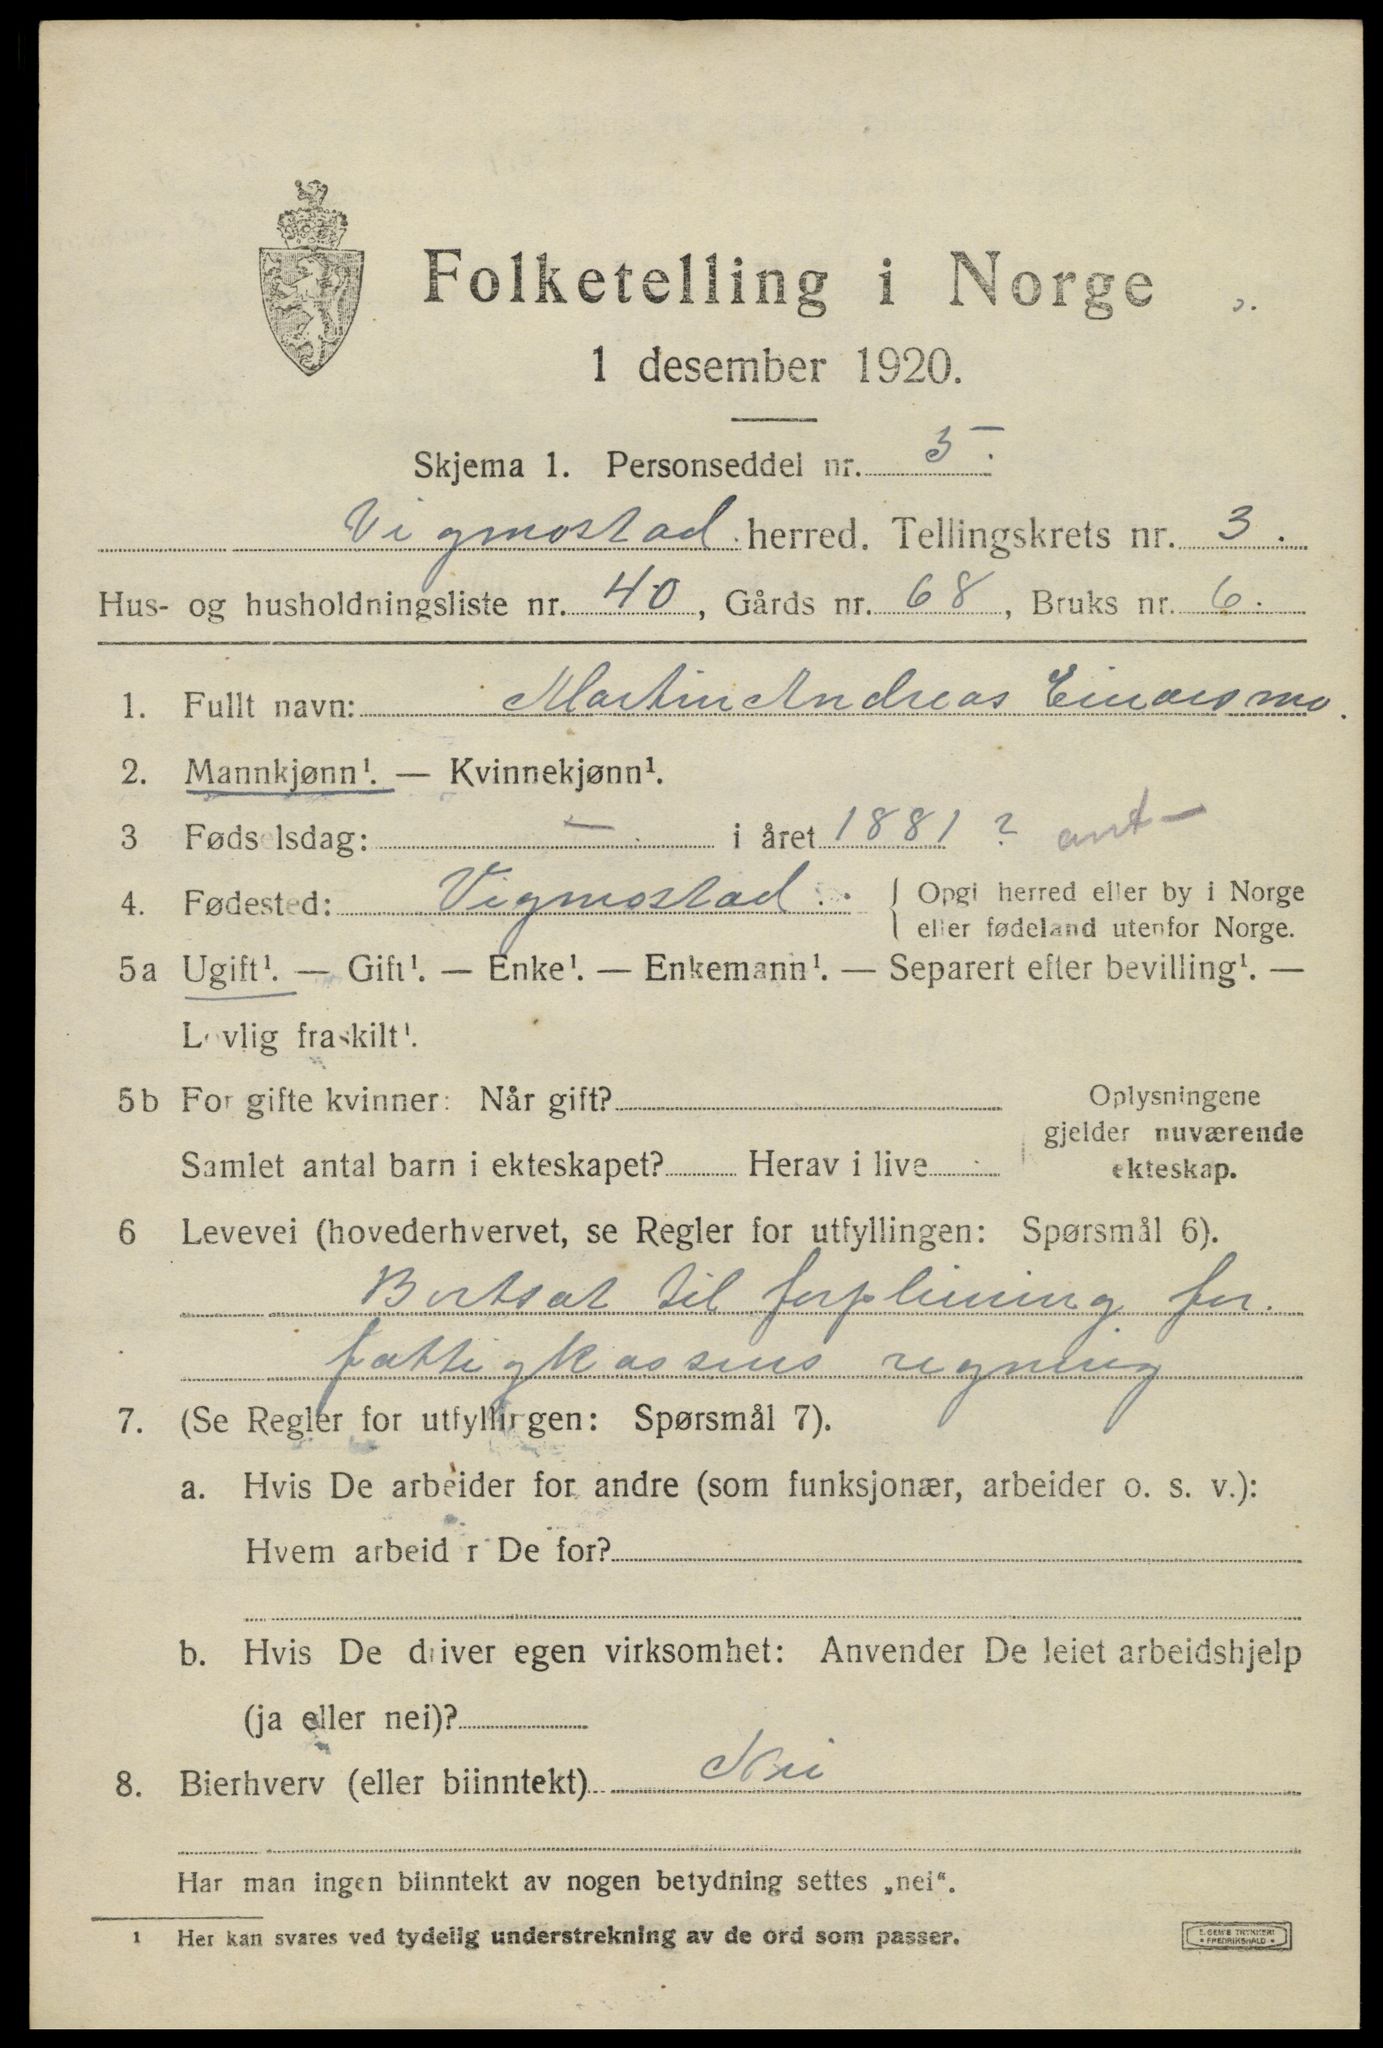 Folketelling i Norge
1 desember 1920.
Skjema 1. Personseddel nr. 5.
Vigmostad herred. Tellingskrets nr. 3.
Hus- og husholdningsliste nr. 40, Gårds nr. 68, Bruks nr. 6.
1. Fullt navn: Martin Andreas
2. Mannkjønn¹. — Kvinnekjønn¹.
3 Fødselsdag: — i året 1881 ? ant —
4. Fødested: Vigmostad. { Opgi herred eller by i Norge
eller fødeland utenfor Norge.
5a Ugift¹. — Gift¹. — Enke¹. — Enkemann¹. — Separert efter bevilling¹. —
Lovlig fraskilt¹.
5b For gifte kvinner: Når gift?
Samlet antal barn i ekteskapet? Herav i live
Oplysningene
gjelder nuværende
ekteskap.
6 Levevei (hovederhvervet, se Regler for utfyllingen: Spørsmål 6).
Bortsat til forpleining for
fattigkassens regning
7. (Se Regler for utfyllingen: Spørsmål 7).
a. Hvis De arbeider for andre (som funksjonær, arbeider o. s. v.):
Hvem arbeid r De for?
b. Hvis De driver egen virksomhet: Anvender De leiet arbeidshjelp
(ja eller nei)?
8. Bierhverv (eller biinntekt) Nei
Har man ingen biinntekt av nogen betydning settes „nei“.
¹ Her kan svares ved tydelig understrekning av de ord som passer.
E. SEM'S TRYKKERI
• FREDRIKSHALD •